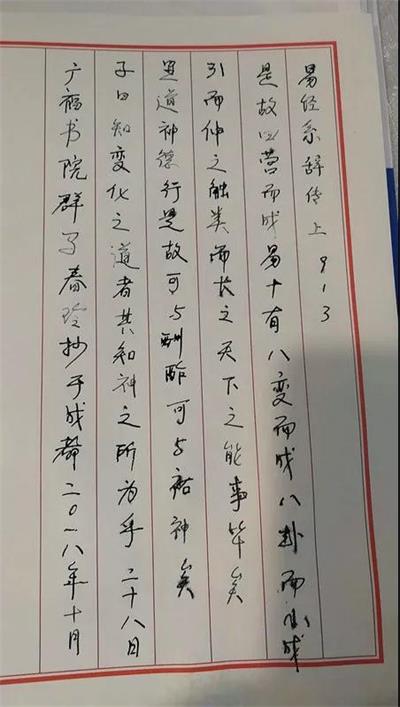 易经系辞传上 913
是故四营而成易十有八变而成八卦而小成
引而伸之触类而长之天下之能事毕矣
显道神德行是故可与酬酢可与祐神矣
子曰知变化之道者其知神之所为乎二十八日
广福书院群子春玲抄于成都二〇一八年十月